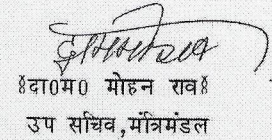 ४दा0म0 मोहन राव४
उप सचिव,मंत्रिमंडल